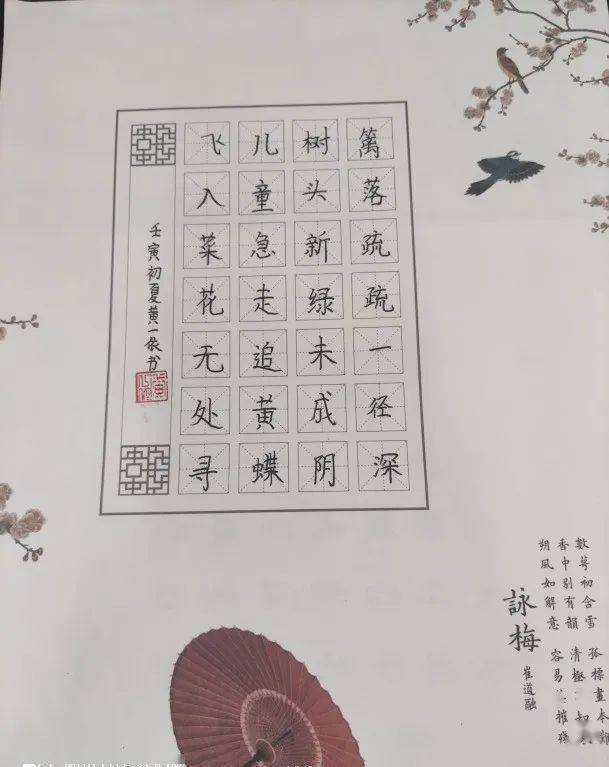 篱落疏疏一径深
树头新绿未成阴
儿童急走追黄蝶
飞入菜花无处寻
壬寅初夏黄一依书
數萼初含雪 孤標畫本難
香中別有韻 清極知
朔風如解意 容易摧殘
詠梅
崔道融